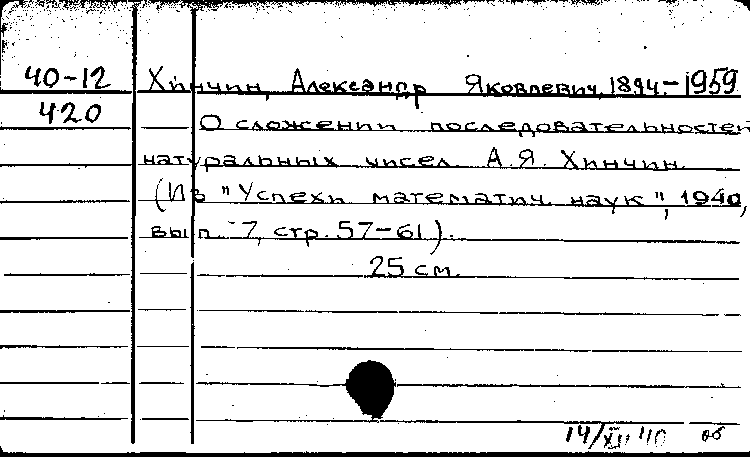 40-12 Хинчин, Александр Яковлевич, 1894-1959
420 О сложении последовательностей
натуральных чисел. А.Я. Хинчин.
(Из "Успехи математич. наук", 1940,
вып. 7, стр. 57-61).
25 см.
14/XII 40 об